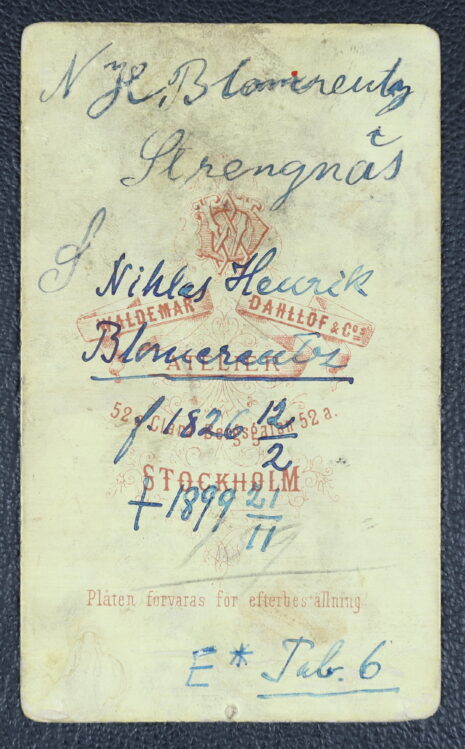 N H. Blomcreutz
Strengnäs
S
Niklas Henrik
WALDEMAR DAHLLÖF & Cos
Blomcreutz
ATELIER
f 1826 12/2
52 a. Clara Bergsgatan 52 a.
STOCKHOLM
† 1899 21/11
Plåten förvaras för efterbeställning
E * Tab. 6